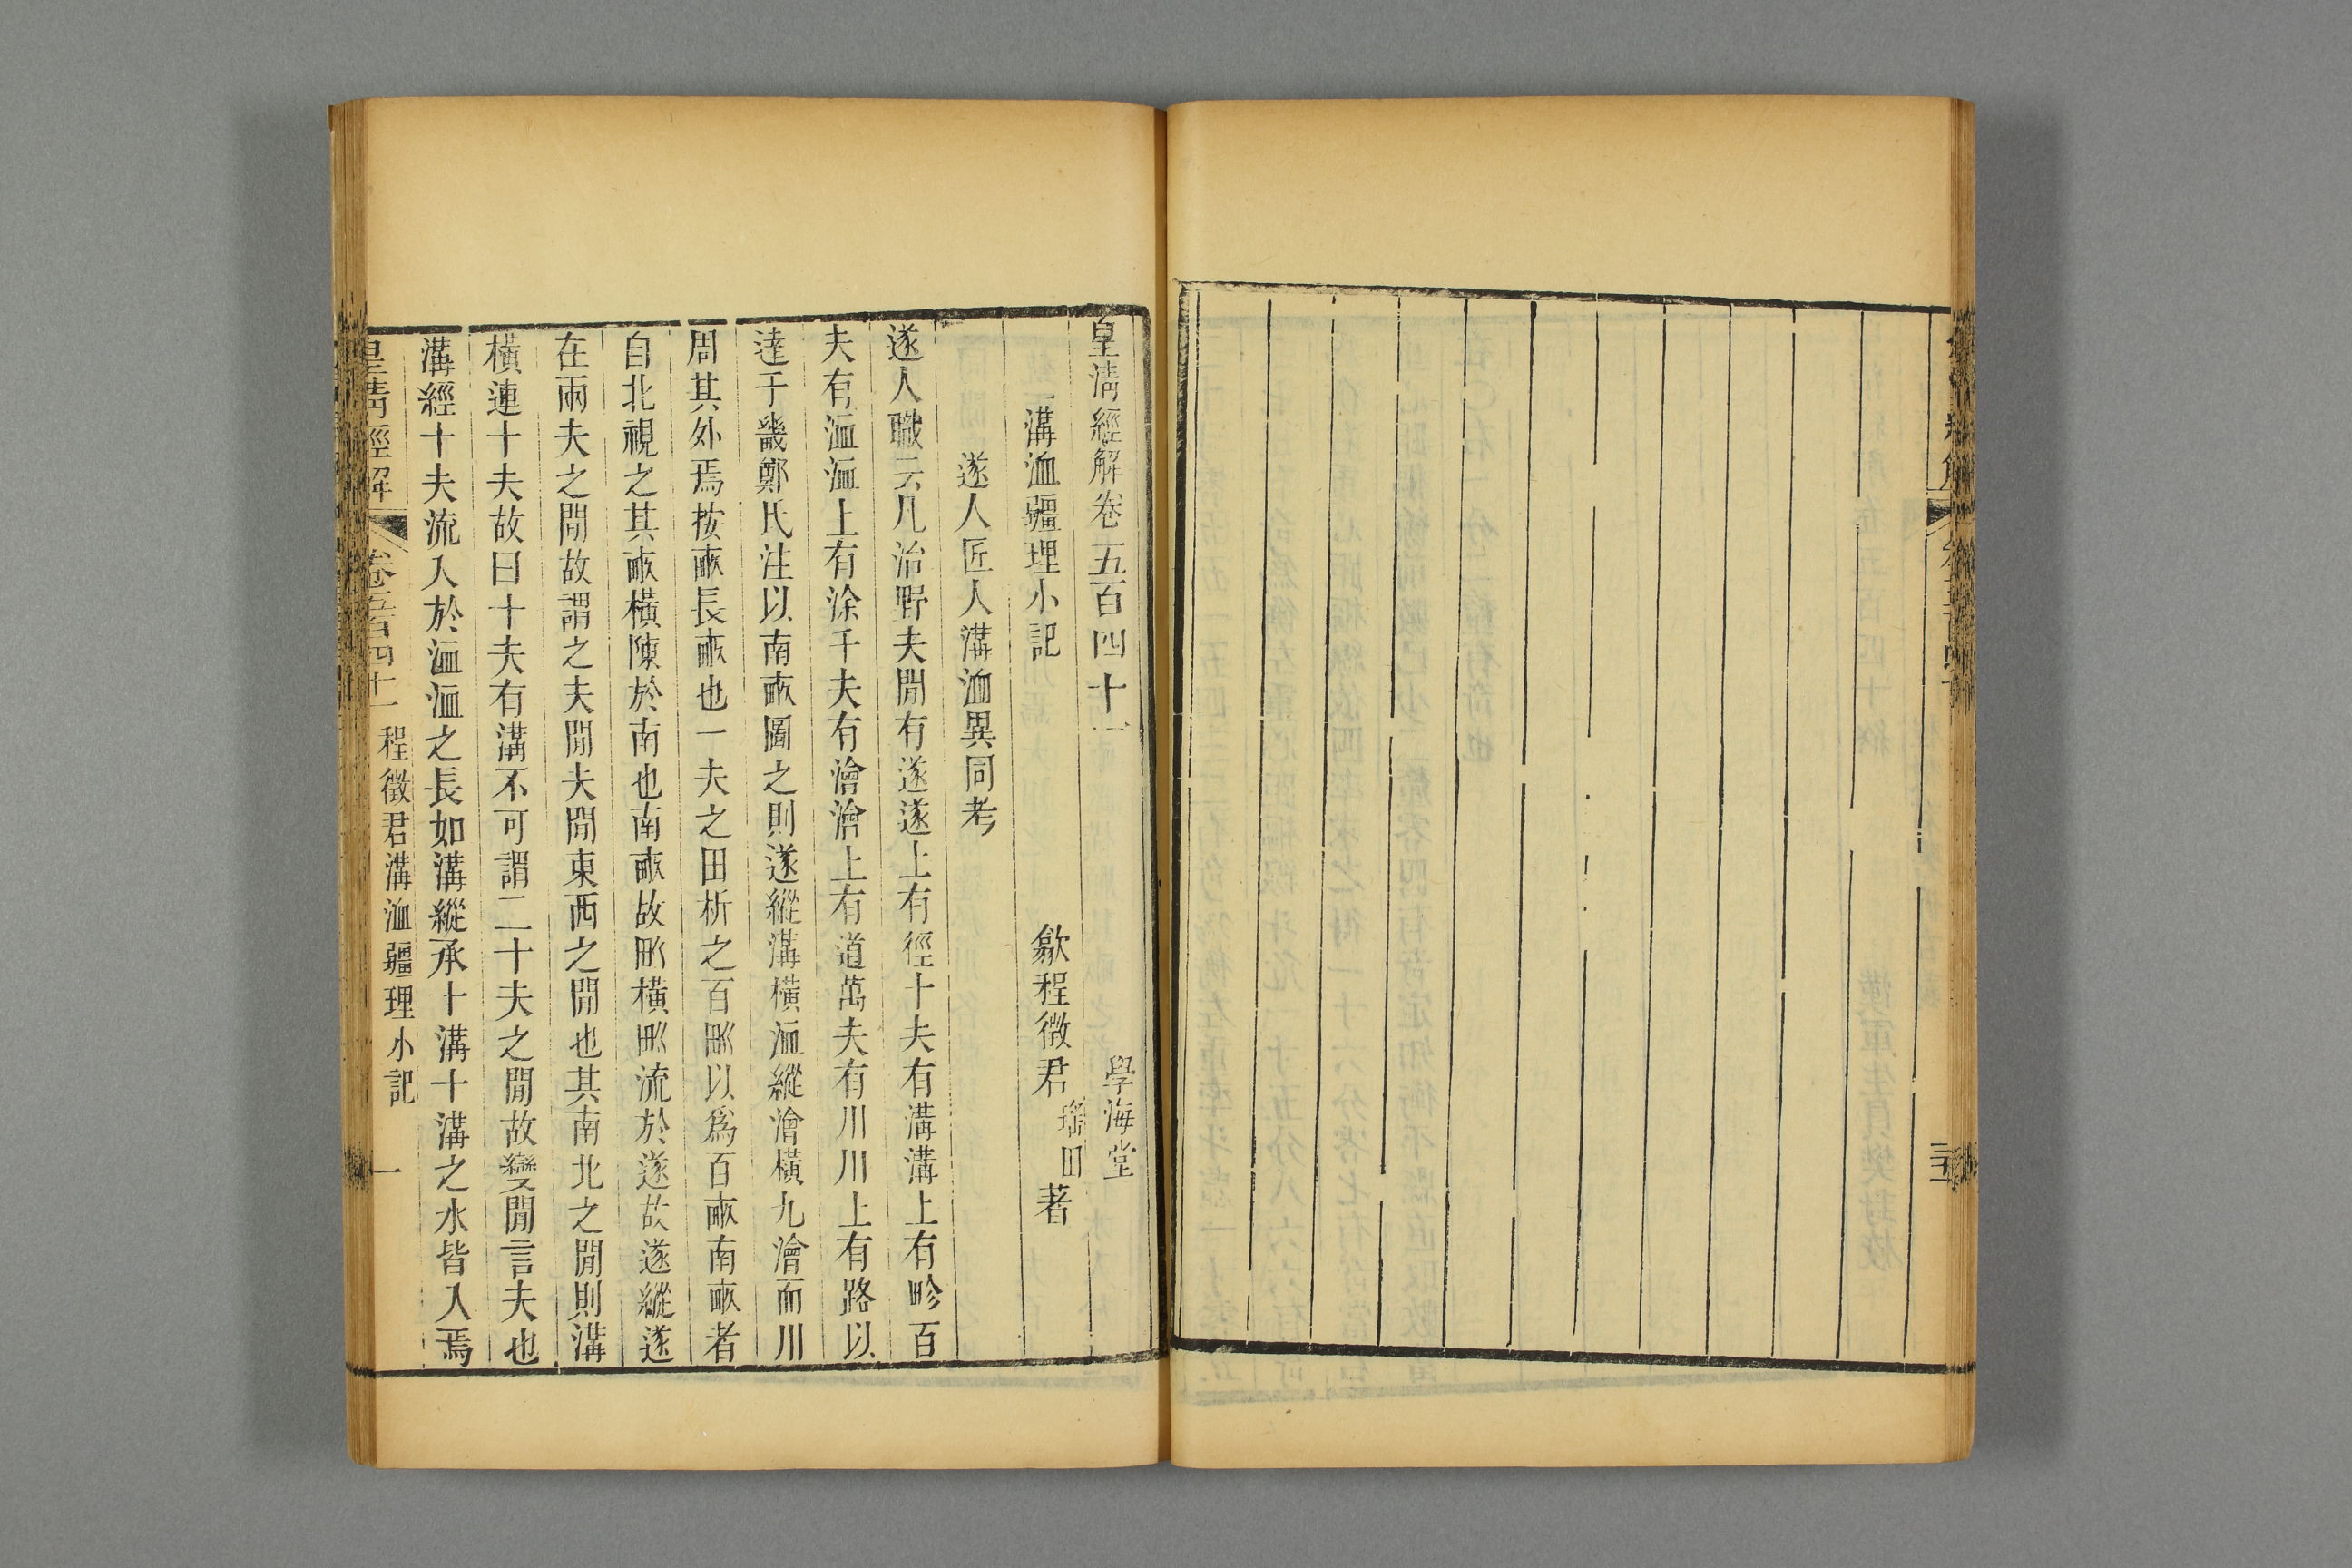 皇清經解卷五百四十一　學海堂
溝洫疆理小記　歙程徵君瑤田著
遂人匠人溝洫異同考
遂人職云凡治野夫閒有遂遂上有徑十夫有溝溝上有畛百
夫有洫洫上有涂千夫有澮澮上有道萬夫有川川上有路以
達于畿鄭氏注以南畝圖之則遂縱溝橫洫縱澮橫九澮而川
周其外焉按畝長畝也一夫之田析之百甽以爲百畝南畝者
自北視之其畝橫陳於南也南畝故甽橫甽流於遂故遂縱遂
在兩夫之閒故謂之夫閒夫閒東西之閒也其南北之閒則溝
橫連十夫故曰十夫有溝不可謂二十夫之閒故變閒言夫也
溝經十夫流入於洫洫之長如溝縱承十溝十溝之水皆入焉
皇清經解　卷五百四十一　程徵君溝洫疆理小記　一